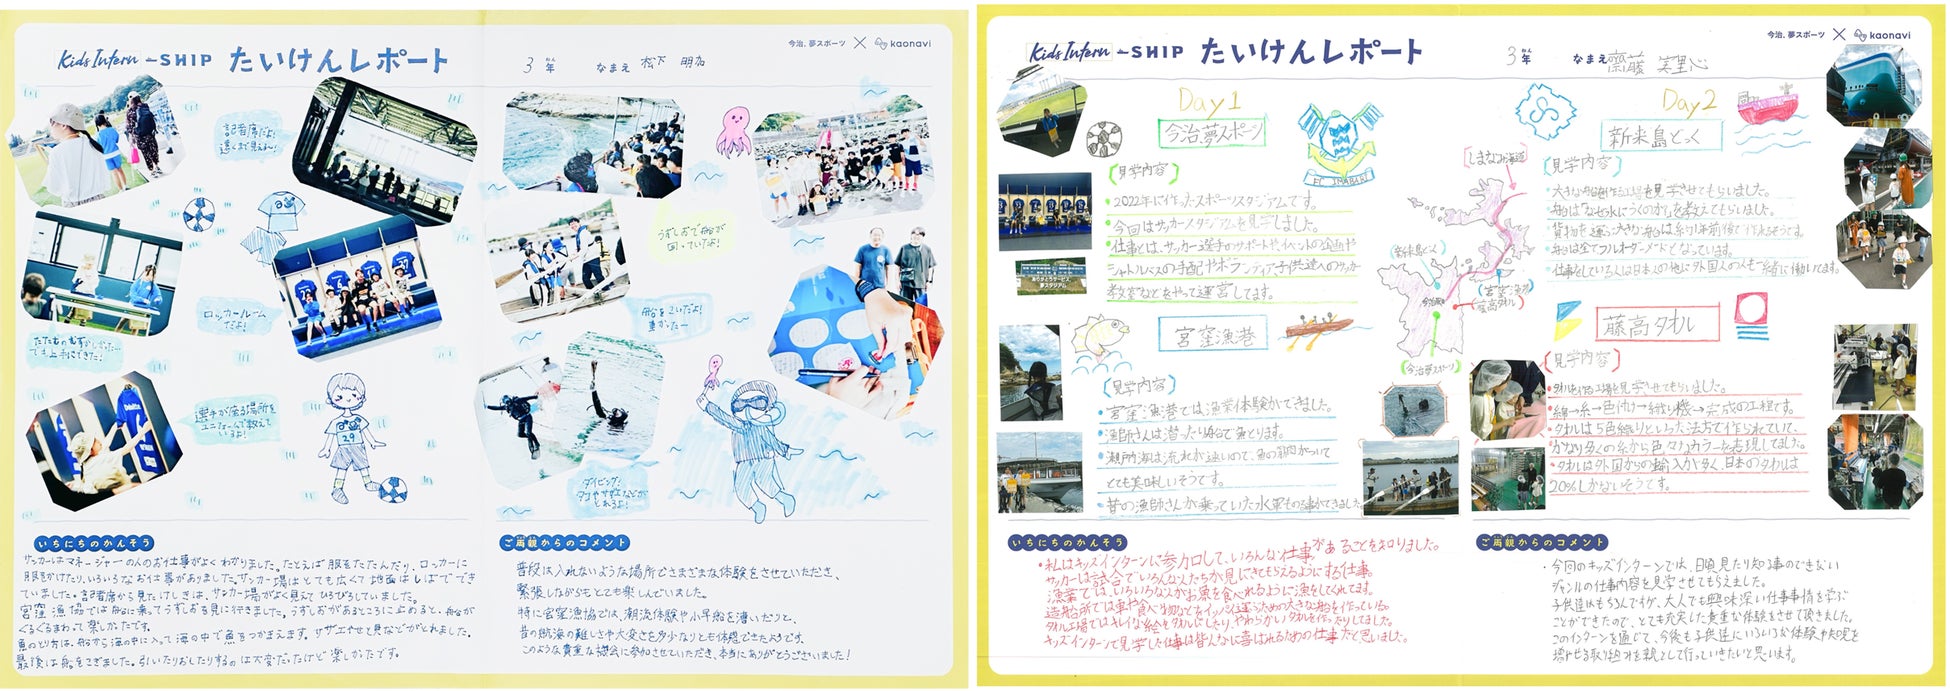 今治.夢スポーツ × kaonavi
Kids Intern-SHIP たいけんレポート
3年 なまえ 松下 明加
記者席だよ!
遠くまで見えるね!
ロッカールーム
だよ!
たたむのむずかしかった…
でも上手にできた!
選手が座る場所を
ユニフォームで教えて
いるよ!
29
うずしおで船が
回っていたよ!
船をこいだよ!
重かったー
ダイビング!
タコやサザエなどが
とれるよ!
いちにちのかんそう
サッカーはマネージャーの人のお仕事がよくわかりました。たとえば服をたたんだり、ロッカーに
服をかけたり、いろいろなお仕事がありました。サッカー場はとても広くて地面はしばででき
ていました。記者席から見たけしきは、サッカー場がよく見えてひろびろしていました。
宮窪漁協では船に乗ってうずしおを見に行きました。うずしおがあるところに止めると、船が
ぐるぐるまわって楽しかったです。
魚のとり方は、船から海の中に入って海の中で魚をつかまえます。サザエやせと貝などがとれました。
最後は船をこぎました。引いたりおしたりするのは大変だったけど楽しかったです。
ご両親からのコメント
普段は入れないような場所でさまざまな体験をさせていただき、
緊張しながらもとても楽しんでいました。
特に宮窪漁協では、潮流体験や小早船を漕いだりと、
昔の航海の難しさや大変さを多少なりとも体感できたようです。
このような貴重な機会に参加させていただき、本当にありがとうございました!
今治.夢スポーツ × kaonavi
Kids Intern-SHIP たいけんレポート
3年 なまえ 齋藤 実里心
Day1
今治.夢スポーツ
FC IMABARI
見学内容
・2022年に作ったスポーツスタジアムです。
・今回はサッカースタジアムを見学しました。
・仕事とは、サッカー選手のサポートやイベントの企画や
シャトルバスの手配やボランティア、子供達へのサッカー
教室などをやって運営してます。
宮窪漁港
見学内容
・宮窪漁港では漁業体験ができました。
・漁師さんは潜ったり船で魚をとります。
・瀬戸内海は流れが速いので、魚の筋肉がついて
とても美味しいそうです。
・昔の漁師さんが乗っていた水軍もの体験ができました。
しまなみ海道
新来島どっく
宮窪漁港
藤高タオル
今治駅
今治夢スポーツ
Day2
新来島どっく
見学内容
・大きな船を作る工場を見学させてもらいました。
・船は「なぜ水にうくのか」を教えてもらいました。
・貨物を運ぶ大きな船は約1年前後で作れるそうです。
・船は全てフルオーダーメードとなっています。
・仕事をしている人は日本人の他に外国人の人も一緒に働いてます。
藤高タオル
見学内容
・タオルを作る工場を見学させてもらいました。
・綿→糸→色付け→織り機→完成の工程です。
・タオルは5色織りといった法方で作られていて、
かなり多くの糸から色々なカラーを表現してました。
・タオルは外国からの輸入が多く、日本のタオルは
20%しかないそうです。
いちにちのかんそう
・私はキッズインターンに参加して、いろんな仕事があることを知りました。
サッカーは試合でいろんな人たちが見にきてもらえるようにする仕事。
漁業では、いろいろな人がお魚を食べれるように漁をしてくれてます。
造船所では車や食べ物などをイッパイ運ぶための大きな船を作っている。
タオル工場ではキレイな絵をタオルにしたり、やわらかいタオルを作ったりしてました。
キッズインターンで見学した仕事は皆んなに喜ばれるための仕事だと思いました。
ご両親からのコメント
・今回のキッズインターンでは、日頃見たり知る事のできない
ジャンルの仕事内容を見学させてもらえました。
子供達はもちろんですが、大人でも興味深い仕事事情を学ぶ
ことができたので、とても充実した貴重な体験をさせて頂きました。
このインターンを通じて、今後も子供達にいろいろな体験や知見を
増やせる取り組みを親として行っていきたいと思います。